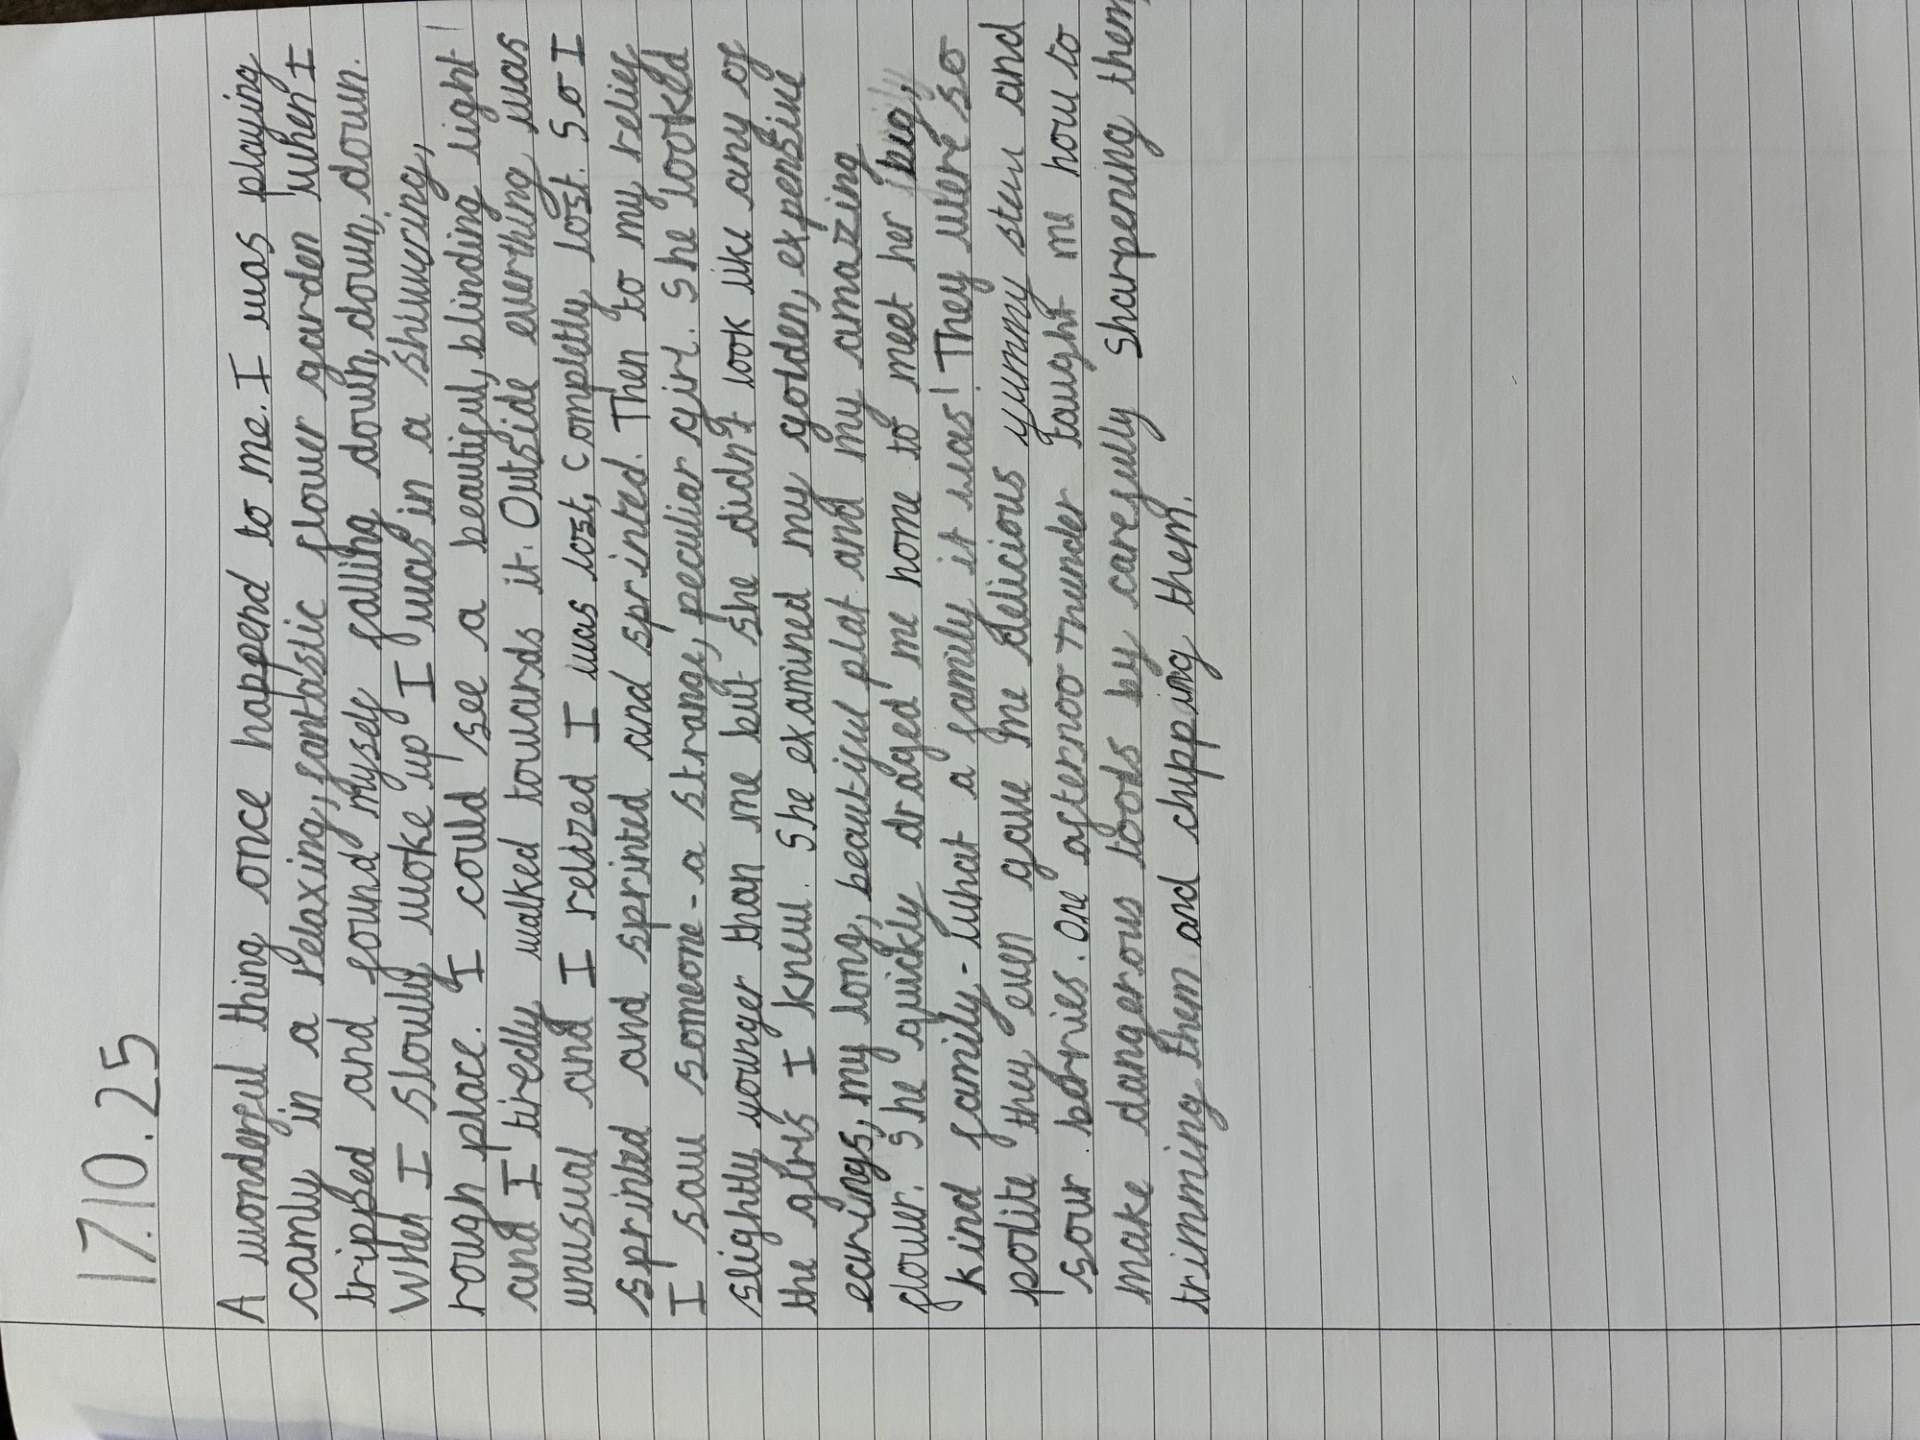 17.10.25
A wonderful thing once happend to me. I was playing
camly in a relaxing, fantastic flower garden when I
tripped and found myself falling down, down, down.
When I slowly woke up I was in a shimmering,
rough place. I could see a beautiful, blinding light!
and I tiredly walked towards it. Outside everthing was
unusual and I relized I was lost, completly lost. So I
sprinted and sprinted and sprinted. Then to my relief
I saw someone - a strange, peculiar girl. She looked
slightly younger than me but she didn't look like any of
the girls I knew. She examined my golden, expensive
earings, my long, beautiful plat and my amazing
flower. She quickly draged me home to meet her big,
kind family - what a family it was! They were so
polite they even gave me delicious yummy stew and
sour berries. One afternoo Thunder taught me how to
make dangerous tools by carefully sharpening them,
trimming them and chipping them.